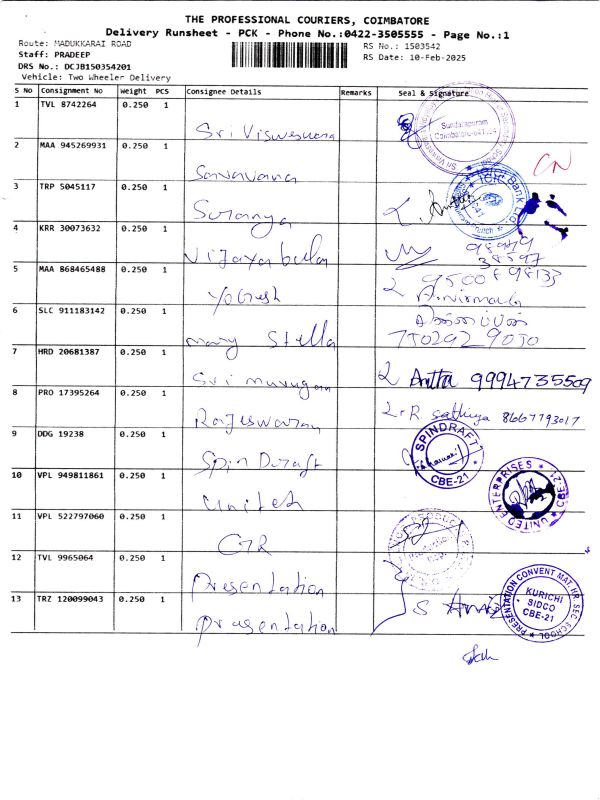 THE PROFESSIONAL COURIERS, COIMBATORE
Delivery Runsheet - PCK - Phone No.:0422-3505555 - Page No.:1
Route: MADUKKARAI ROAD
RS No.: 1503542
Staff: PRADEEP
RS Date: 10-Feb-2025
DRS No.: DCJB150354201
Vehicle: Two Wheeler Delivery
S No Consignment No Weight PCS Consignee Details Remarks Seal & Signature
1 TVL 8742264 0.250 1 Sri Visweswara
Sundarapuram
2 MAA 945269931 0.250 1 Saravana
CN
3 TRP 5045117 0.250 1 Suranya
Bank Ltd.
4 KRR 30073632 0.250 1 Vijayabula
98949
38597
5 MAA 868465488 0.250 1 Yogesh
9500898133
A.nirmala
6 SLC 911183142 0.250 1 mary Stella
7502929030
7 HRD 20681387 0.250 1 Sri murugan
Anitha 9994735509
8 PRO 17395264 0.250 1 Rajeswaran
R sathiya 8667793017
9 DDG 19238 0.250 1 Spin Draft
SPINDRAFT
CBE-21
10 VPL 949811861 0.250 1 United
UNITED ENTERPRISES
CBE-21
11 VPL 522797060 0.250 1 GTR
12 TVL 9965064 0.250 1 Presentation
13 TRZ 120099043 0.250 1 Prasentation
PRESENTATION CONVENT MAT. HR. SEC. SCHOOL
KURICHI
SIDCO
CBE-21